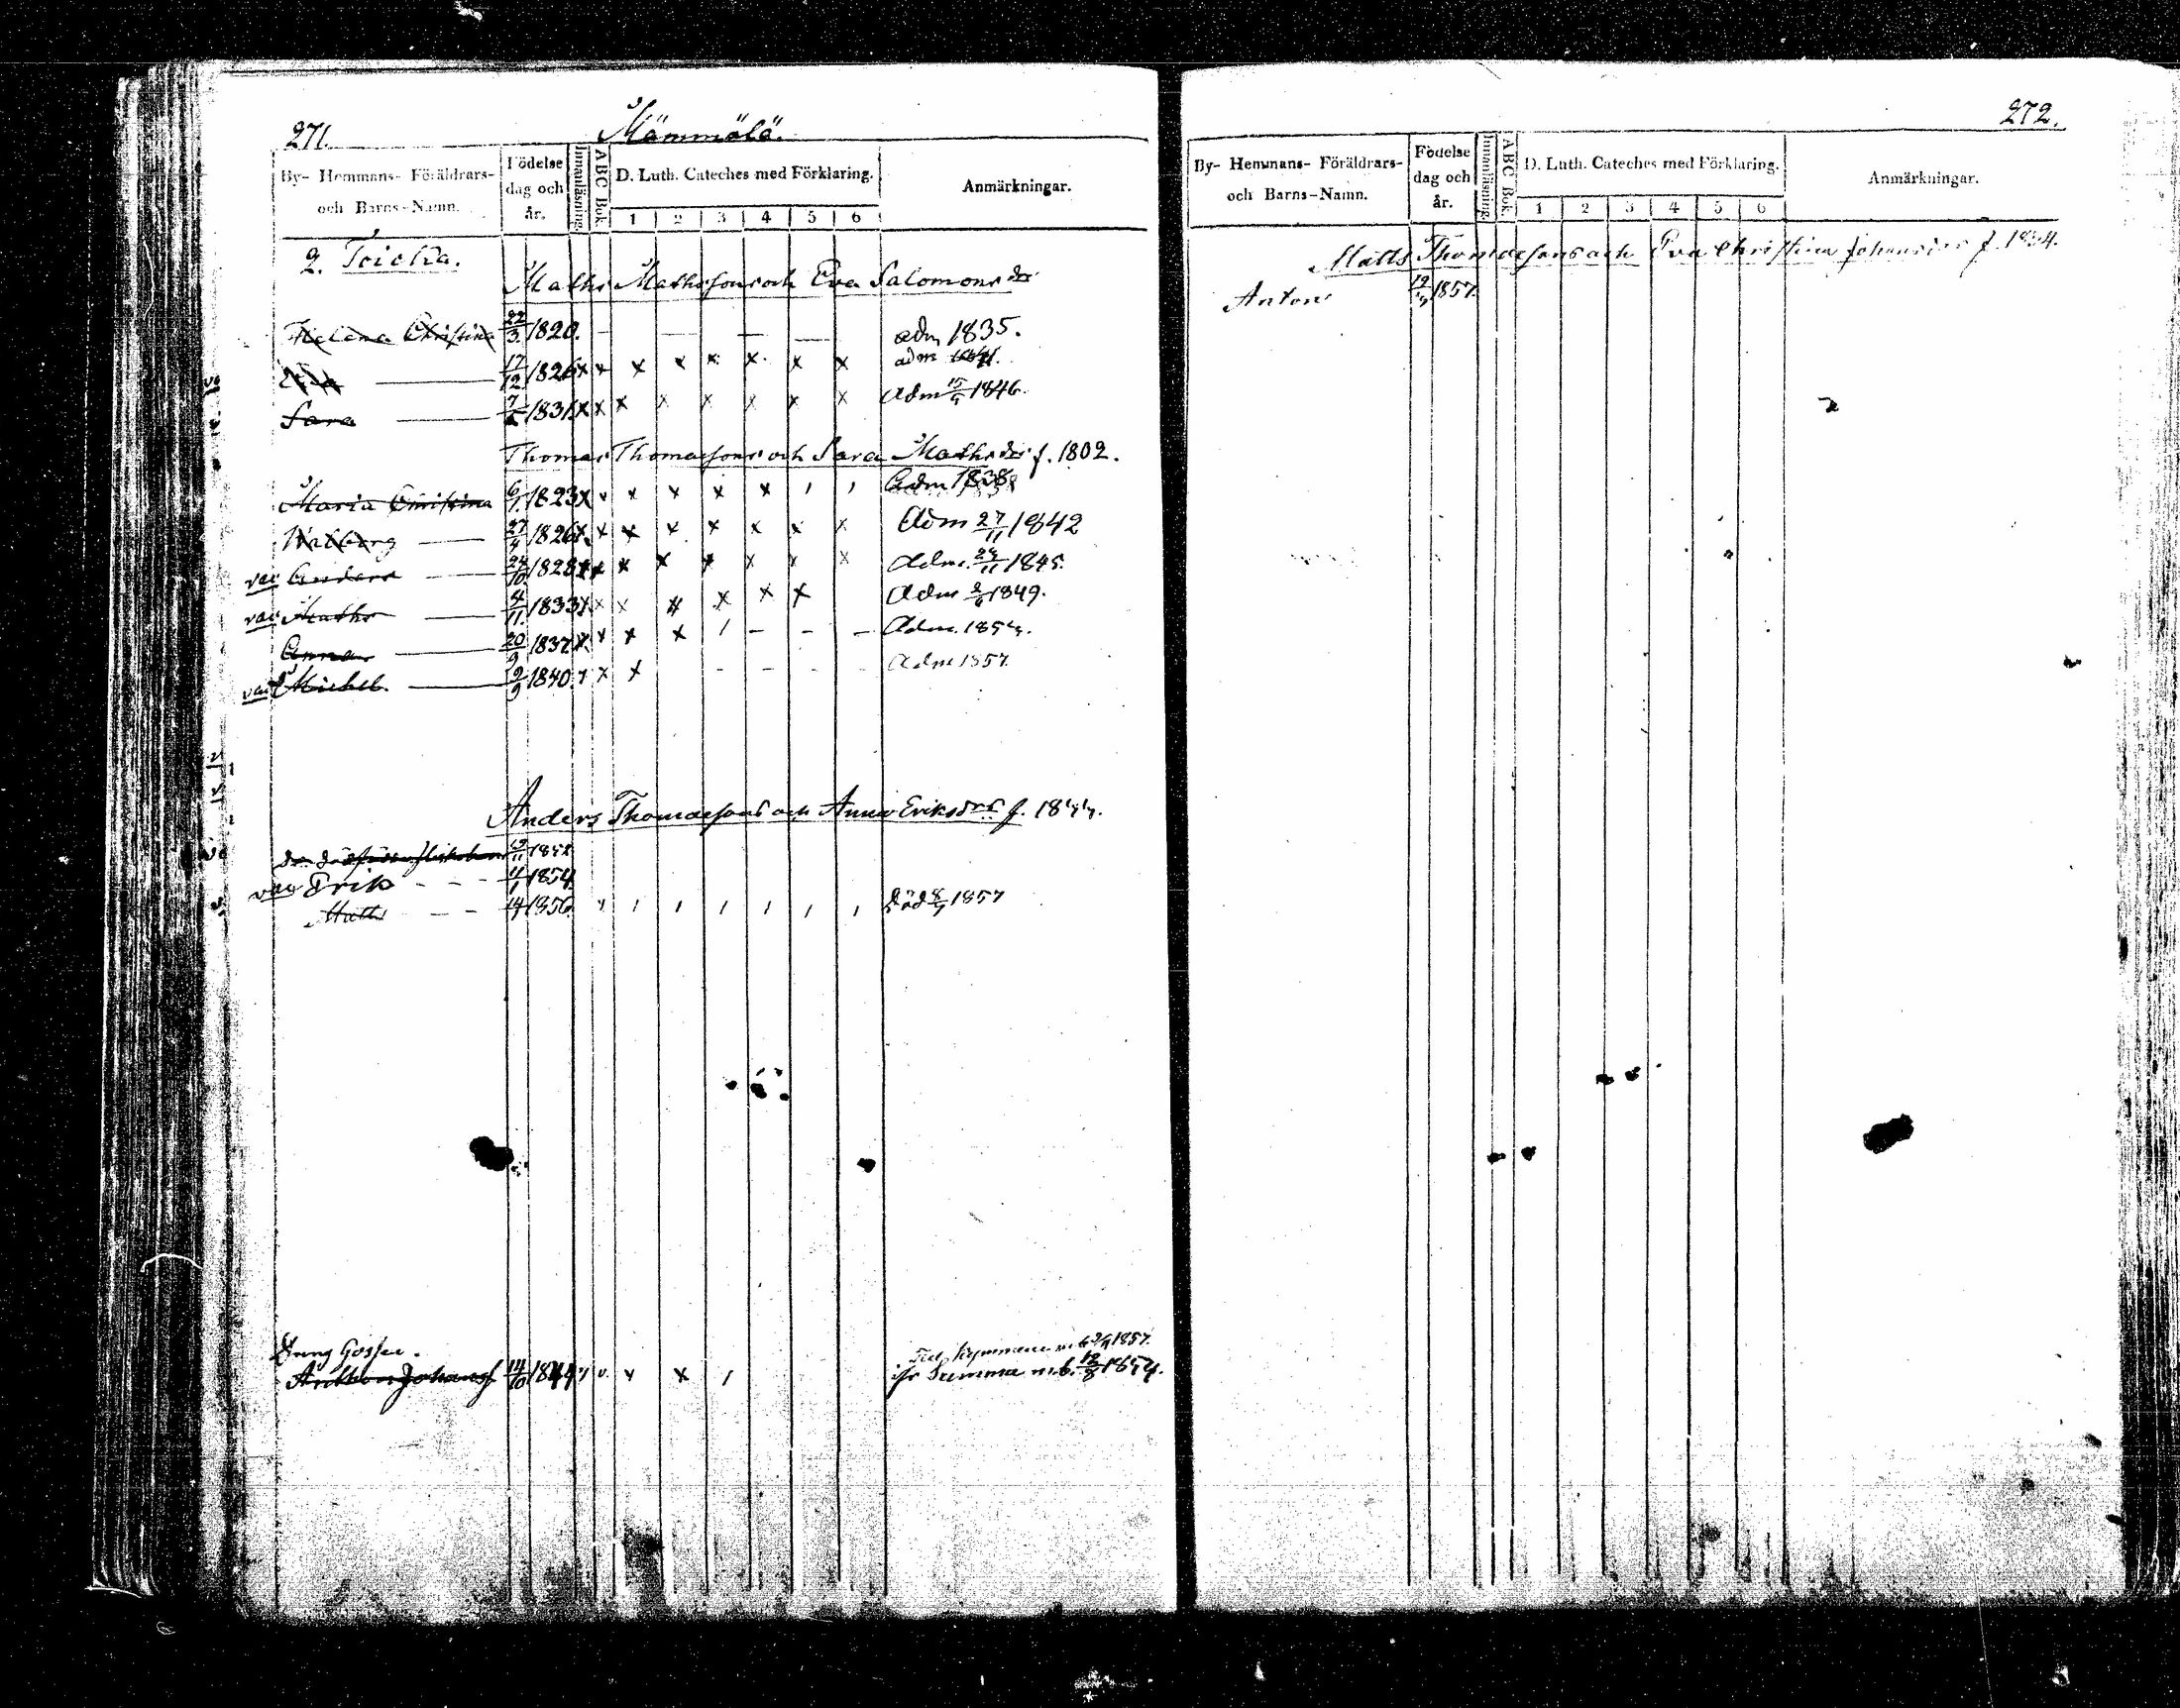 271.
Mämmälä.
By- Hemmans- Föräldrars- och Barns-Namn.
Födelse dag och år.
Innanläsning.
ABC Bok.
D. Luth. Cateches med Förklaring.
1 2 3 4 5 6
Anmärkningar.
2. Toicka.
Maths Mathssons och Eva Salomons der
Helena Christina 22/3 1820. — — — — adm 1835.
17/12 1826 x x x x x x x x adm
Sara — 7 1831 x x x x x x x x Adm 15/9 1846.
Thomas Thomassons och Sara Maths der f. 1802.
Maria Christina 6/1 1823 x x x x x x , , Adm 1838
Walborg — 27/4 1826 x x x x x x x x Adm 27/11 1842
vac Anders — 24/10 1828 x x x x x x x x Adm. 24/11 1845.
vac Maths — 4/11 1833 x x x x x x x Adm 1849.
Anna — 20/9 1837 x x x x / - - - Adm. 1854.
vac Michel. — 9/9 1840 x x x - - - - Adm 1857.
Anders Thomassons och Anna Eriksdrs f. 1844.
1852
vac Erik - - - 4/1 1854
Matts - - - 1856 Död 8/9 1857
Dreng Gosse.
Anthon Johanss 14/10 1844 x x / 1857.
ifr Summa m.b. 18/8 1854.
272.
By- Hemmans- Föräldrars- och Barns-Namn.
Födelse dag och år.
Innanläsning.
ABC Bok.
D. Luth. Cateches med Förklaring.
1 2 3 4 5 6
Anmärkningar.
Matts Thomassons och Eva Christina Johansdrs f. 1834.
Anton 1857.